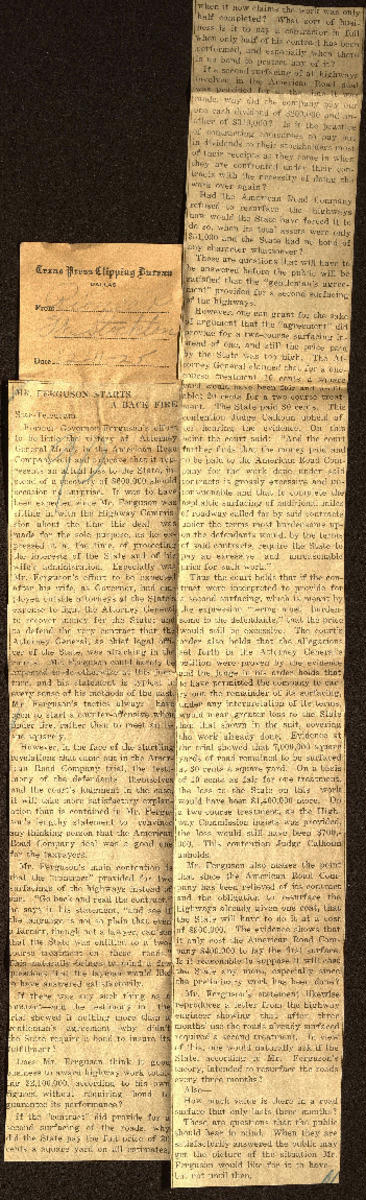 Texas Press Clipping Bureau
DALLAS
From
Date
MR. FERGUSON STARTS
A BACK FIRE
Star-Telegram.
Former Governor Ferguson's effort
to be little the victory of Attorney
General in the American Road
Company suit and prove that it rep-
resents an actual loss to the State, in-
stead of a profit of $600,000 should
occasion no surprise. It was to have
been expected since Mr. Ferguson was
sitting in with the Highway Commis-
sion about the time this deal was
made for the sole purpose, as he ex-
pressed it at the time, of protecting
the interests of the State and of his
wife's administration. Especially was
Mr. Ferguson's effort to be expected
after his wife, as Governor, had em-
ployed outside attorneys at the State's
expense to fight the Attorney General
to recover money for the State, and
to defend the very contract that the
Attorney General, as chief legal offi-
cer of the State, was attacking in the
courts. Mr. Ferguson could hardly be
expected to do otherwise at this junc-
ture, and his statement is typical in
every sense of his methods of the past.
Mr. Ferguson's tactics always have
been to start a counter-offensive when
under fire, rather than to meet an issue
squarely.
However, in the face of the startling
revelations that came out in the Ameri-
can Road Company trial, the testi-
mony of the defendants themselves
and the court's judgment in the case,
it will take more satisfactory explan-
ation than is contained in Mr. Fergu-
son's lengthy statement to convince
any thinking person that the American
Road Company deal was a good one
for the taxpayers.
Mr. Ferguson's main contention is
that the "contract" provided for two
surfacings of the highways instead of
one. "Go back and read the contract,"
he says in his statement, "and see if
the language is not so plain that even
a farmer, though not a lawyer, can see
that the State was entitled to a two-
course treatment on these roads."
This naturally brings to mind a few
questions that the layman would like
to have answered satisfactorily.
If there was any such thing as a
contract—and the testimony in the
trial showed it nothing more than a
gentleman's agreement why didn't
the State require a bond to insure its
fulfillment?
Does Mr. Ferguson think it good
business to award highway work total-
ing $2,100,000, according to his own
figures, without requiring bond to
guarantee its performance?
If the "contract" did provide for a
second surfacing of the roads, why
did the State pay the full price of 30
cents a square yard on all estimates,
when it now claims the work was only
half completed? What sort of busi-
ness is it to pay a contractor in full
when only half of his contract has been
performed, and especially when there
is no bond to protect any of it?
If a second surfacing of all highways
involved in the American Road deal
was provided for at the time it was
made, why did the company pay out
one cash dividend of $200,000 and an-
other of $319,000? Is it the practice
of contracting companies to pay out
in dividends to their stockholders most
of their receipts as they come in when
they are confronted under their con-
tracts with the necessity of doing the
work over again?
Had the American Road Company
refused to resurface the highways
how would the State have forced it to
do so, when its total assets were only
and the State had no bond of
any character whatsoever?
These are questions that will have to
be answered before the public will be
satisfied that the "gentleman's agree-
ment" provided for a second surfacing
of the highways.
However, one can grant for the sake
of argument that the "agreement" did
provide for a two-course surfacing in-
stead of one, and still the price paid
by the State was too high. The At-
torney General claimed that for a one-
course treatment 10 cents a square
yard would have been fair and reason-
able; 20 cents for a two course treat-
ment. The State paid 30 cents. This
contention Judge Calhoun upheld af-
ter hearing the evidence. On this
point the court said: "And the court
further finds that the money paid and
to be paid to the American Road Com-
pany for the work done under said
contracts is grossly excessive and un-
conscionable and that to complete the
asphaltic surfacing of additional miles
of roadway called for by said contracts
under the terms most burdensome up-
on the defendants would, by the terms
of said contracts, require the State to
pay an excessive and unreasonable
price for such work."
Thus the court holds that if the con-
tract were interpreted to provide for
a second surfacing, which is meant by
the expression "terms most burden-
some to the defendants," that the price
would still be excessive. The court's
order also holds that the allegations
set forth in the Attorney General's
petition were proven by the evidence
and the judge in his order holds that
to have permitted the company to car-
ry out the remainder of its surfacing,
under any interpretation of its terms,
would mean greater loss to the State
than that shown in the suit, covering
the work already done. Evidence at
the trial showed that 7,000,000 square
yards of road remained to be surfaced
at 30 cents a square yard. On a basis
of 10 cents as fair for one treatment,
the loss to the State on this work
would have been $1,400,000 more. On
a two-course treatment, as the High-
way Commission insists was provided,
the loss would still have been $700,-
000. This contention Judge Calhoun
upholds.
Mr. Ferguson also makes the point
that since the American Road Com-
pany has been relieved of its contract
and the obligation to resurface the
highways already given one coat, that
the State will have to do it at a cost
of $800,000. The evidence shows that
it only cost the American Road Com-
pany $400,000 to lay the first surface.
Is it reasonable to suppose it will cost
the State any more, especially since
the preliminary work has been done?
Mr. Ferguson's statement likewise
reproduces a letter from the highway
engineer showing that after three
months' use the roads already surfaced
required a second treatment. In view
of this, one would naturally ask if the
State, according to Mr. Ferguson's
theory, intended to resurface the roads
every three months?
Also—
How much value is there in a road
surface that only lasts three months?
These are questions that the public
should bear in mind. When they are
satisfactorily answered the public may
get the picture of the situation Mr.
Ferguson would like for it to have—
but not until then.